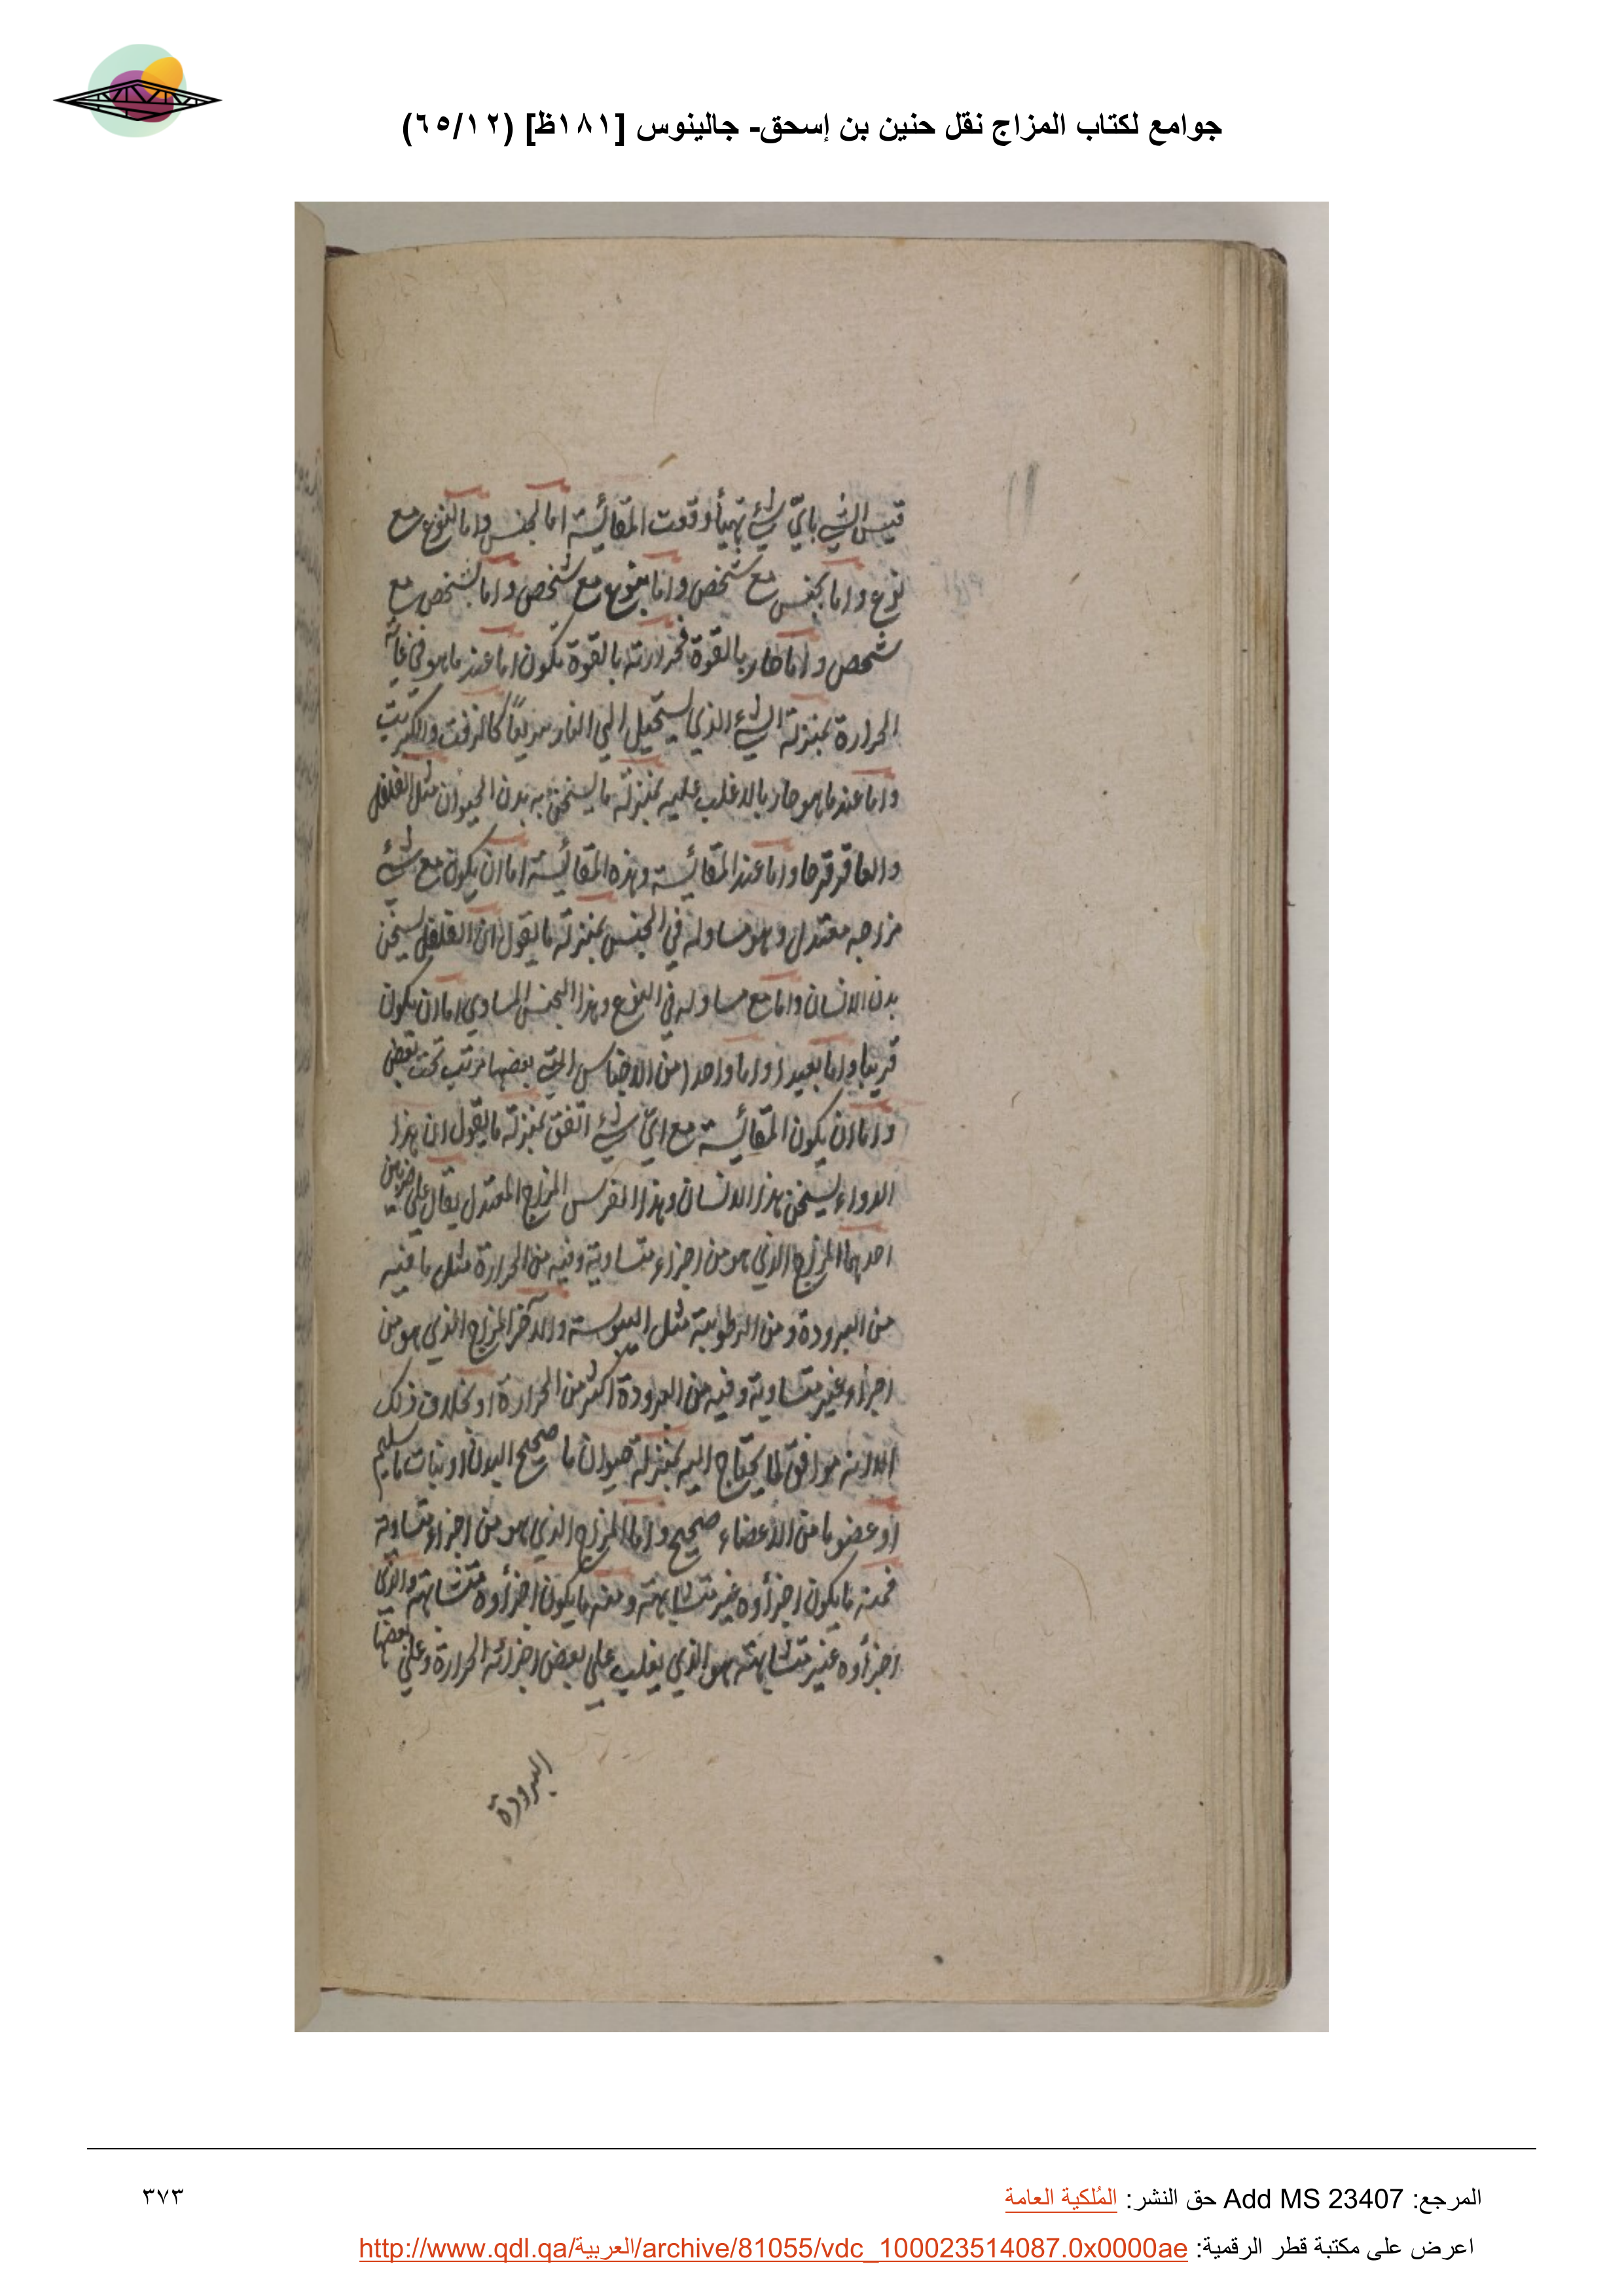 جوامع لكتاب المزاج نقل حنين بن إسحق- جالينوس [١٨١ظ] (٦٥/١٢)
قيس الشي باي شيء تهيأ وقعت المقائسة اما لجنس واما لنوع مع
نوع واما بجنس مع شخص واما بنوع مع شخص واما لشخص مع
شخص واما حار بالقوة فحرارته بالقوة يكون اما عند ما هو في غاية
الحرارة بمنزلة الشيء الذي يستحيل الي النار سريعًا كالزفت والكبريت
واما عند ما هو حار بالاغلب عليه بمنزلة ما يسخن به بدن الحيوان مثل الفلفل
والعاقرقرحا واما عند المقائسة وهذه المقائسة اما ان يكون مع شيء
مزاجه معتدل وهو مساو له في الجنس بمنزلة ما يقول ان الفلفل يسخن
بدن الانسان واما مع مساو له في النوع وهذا الجنس المساوي اما ان يكون
قريبا واما بعيدا واما واحدا من الاجناس التي بعضها مرتب تحت بعض
واما ان يكون المقائسة مع اي شيء اتفق بمنزلة ما يقول ان هذا
الدواء يسخن هذا الانسان وهذا الفرس المزاج المعتدل يقال علي ضربين
احدهما المزاج الذي هو من اجزاء متساوية وفيه من الحرارة مثل ما فيه
من البرودة ومن الرطوبة مثل اليبوسة والآخر المزاج الذي هو من
اجزاء غير متساوية وفيه من البرودة اكثر من الحرارة او بخلاف ذلك
الا انه موافق لما يحتاج اليه بمنزلة حيوان ما صحيح البدن او نبات ما سليم
او عضو ما من الاعضاء صحيح واما المزاج الذي هو من اجزاء متساوية
فمنه ما يكون اجزأوه غير متشابهة ومنه ما يكون اجزأوه متشابهة والذي
اجزأوه غير متشابهة هو الذي يغلب علي بعض اجزائه الحرارة وعلي بعضها
البرودة
المرجع: Add MS 23407 حق النشر: المُلكية العامة
٣٧٣
اعرض على مكتبة قطر الرقمية: http://www.qdl.qa/العربية/archive/81055/vdc_100023514087.0x0000ae